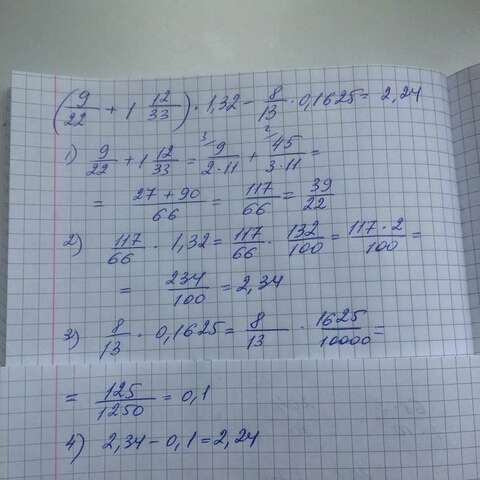 (9/22 + 1 12/33) · 1,32 - 8/13 · 0,1625 = 2,24
1) 9/22 + 1 12/33 = 3/ 9/(2·11) + 2/ 45/(3·11) =
= (27+90)/66 = 117/66 = 39/22
2) 117/66 · 1,32 = 117/66 · 132/100 = (117·2)/100 =
= 234/100 = 2,34
3) 8/13 · 0,1625 = 8/13 · 1625/10000 =
= 125/1250 = 0,1
4) 2,34 - 0,1 = 2,24